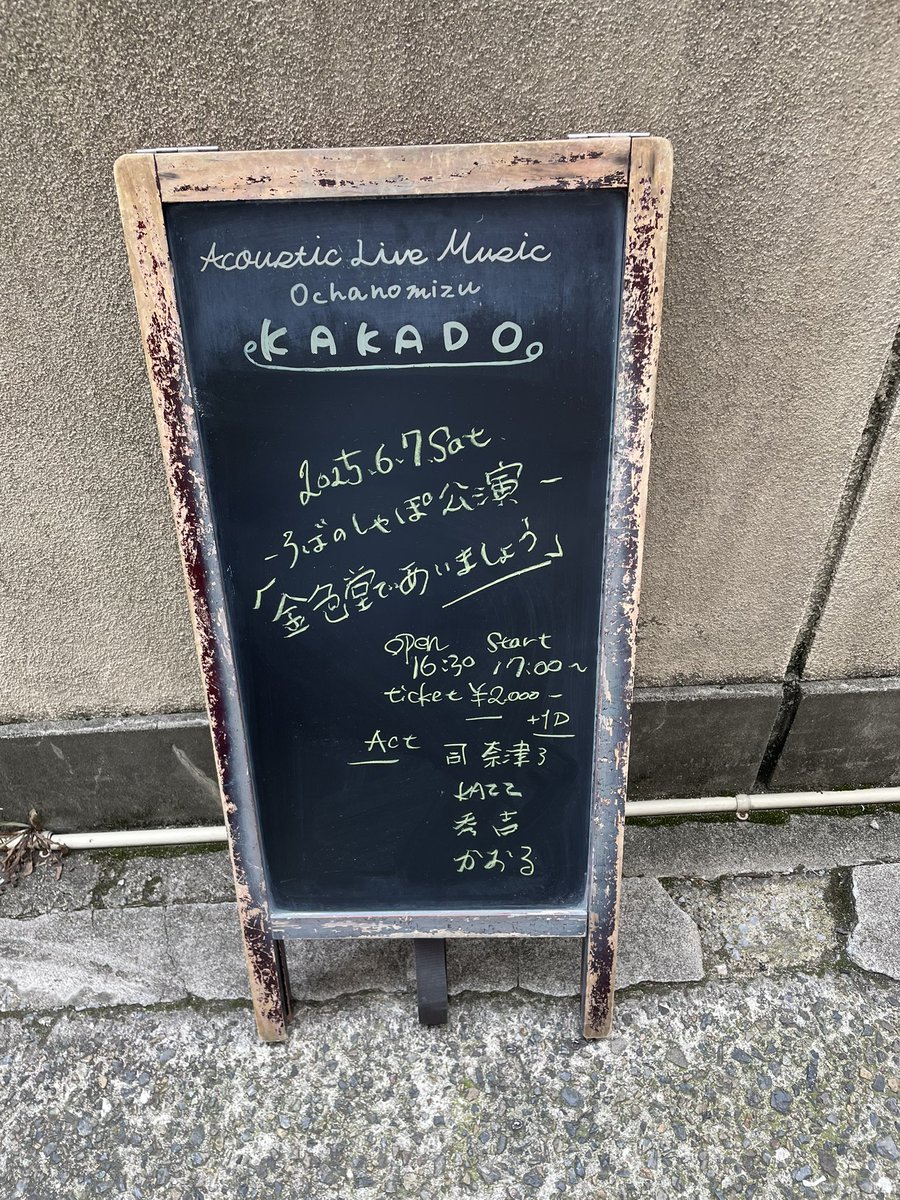 Acoustic Live Music
Ochanomizu
KAKADO
2025.6.7.Sat
-ろばのしゃぽ公演-
「金色堂であいましょう」
open start
16:30 17:00~
ticket ¥2,000-
+1D
Act 司 奈津子
KAZZ
秀吉
かおる